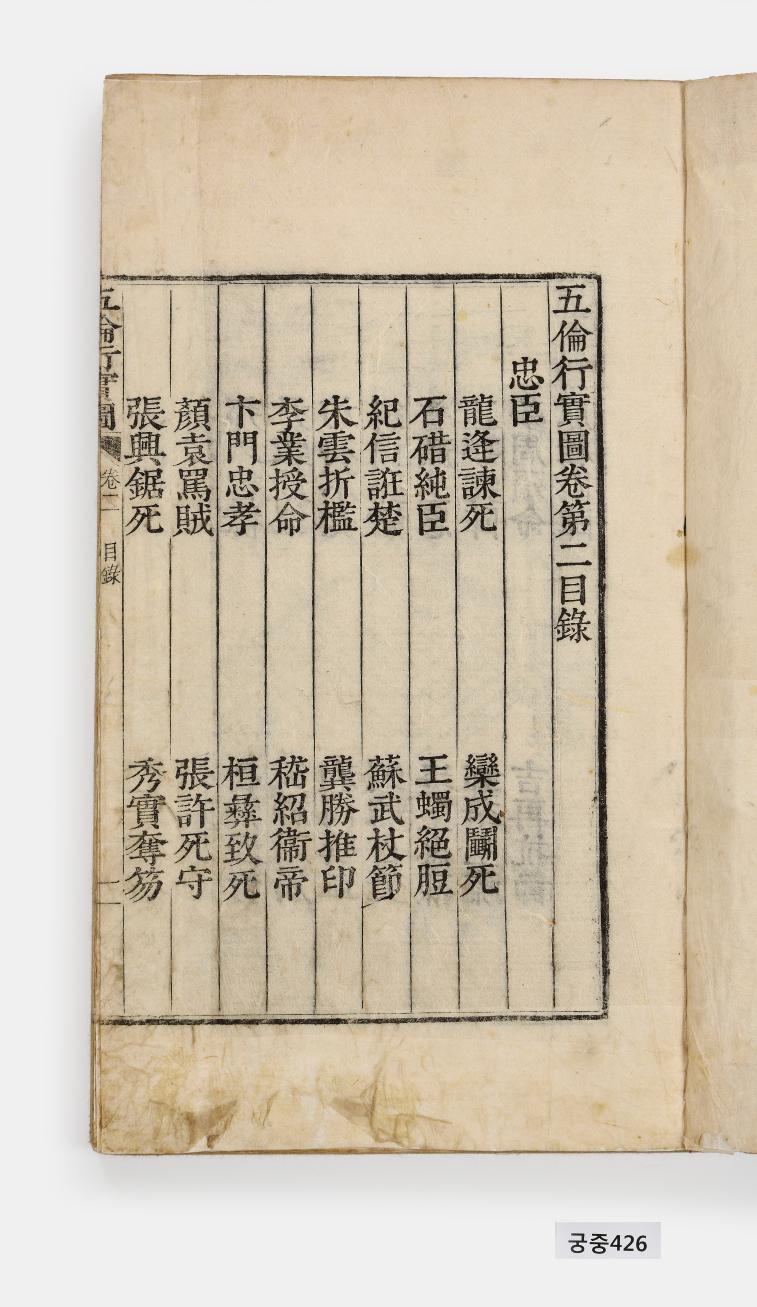 五倫行實圖卷第二目錄
忠臣
龍逄諫死 欒成鬬死
石碏純臣 王蠋絕脰
紀信誑楚 蘇武杖節
朱雲折檻 龔勝推印
李業授命 嵇紹衞帝
卞門忠孝 桓彝致死
顏袁罵賊 張許死守
張興鋸死 秀實奪笏
五倫行實圖 卷二 目錄 一
궁중426